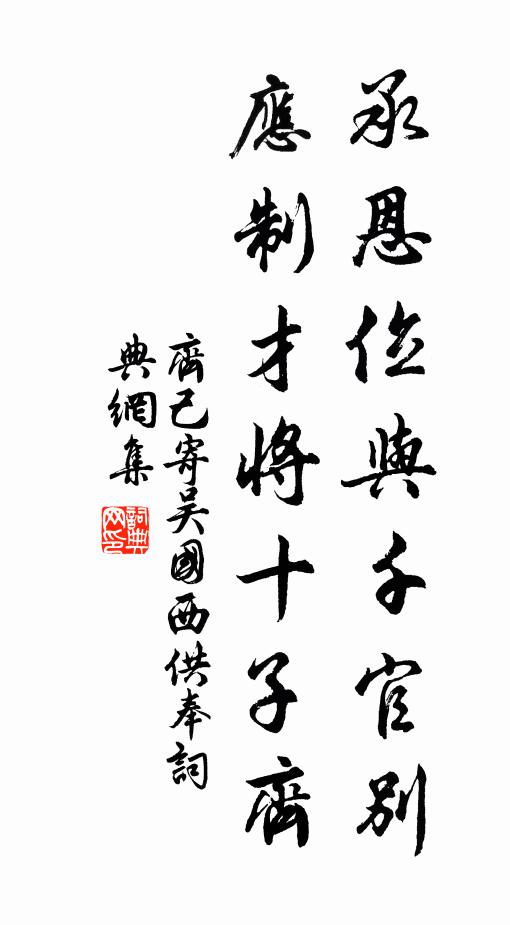 承恩位與千官別
應制才將十子齊
齊己寄吴國西供奉詞
典網集
詞典
网印